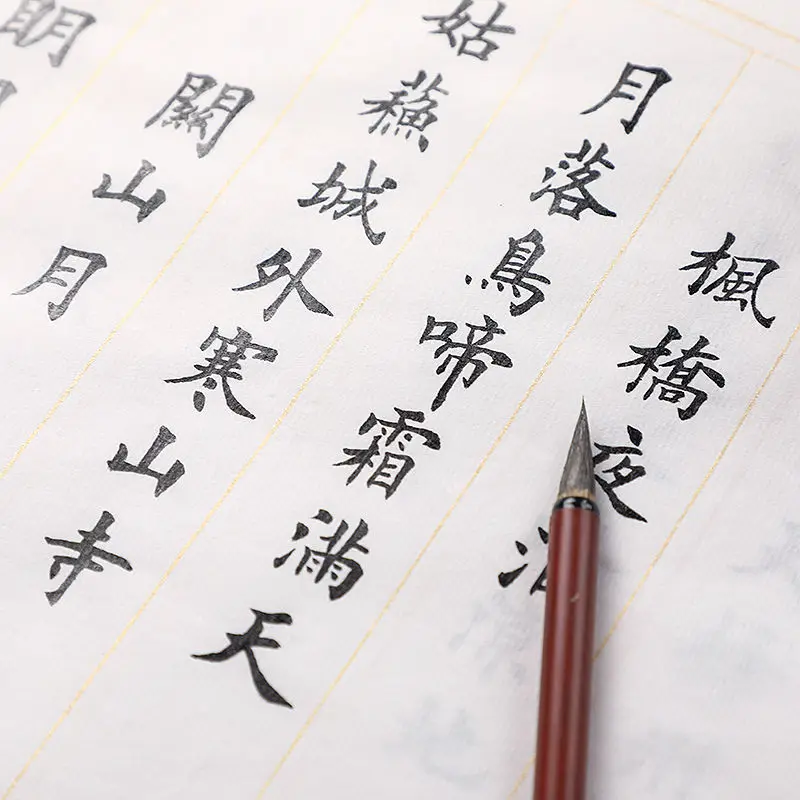 楓橋夜
月落鳥啼霜滿天
姑蘓城外寒山寺
關山月
明